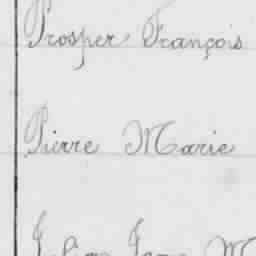 Prosper François
Pierre Marie